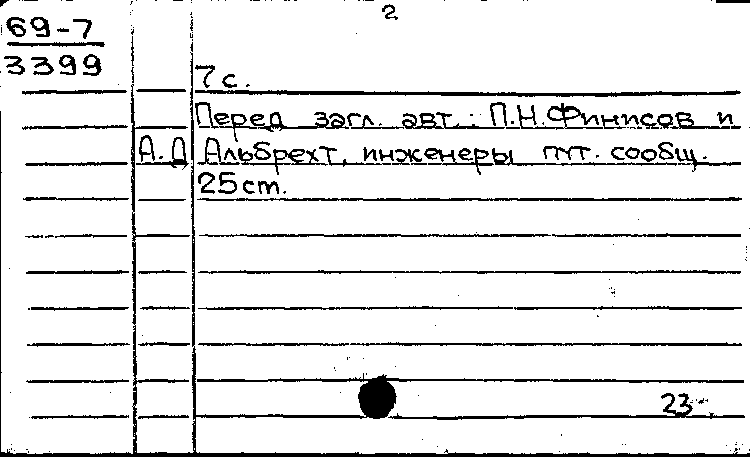 2
69-7
3399
7 с.
Перед загл. авт.: П.Н. Финисов и
А.Д Альбрехт, инженеры пут. сообщ.
25 cm.
23